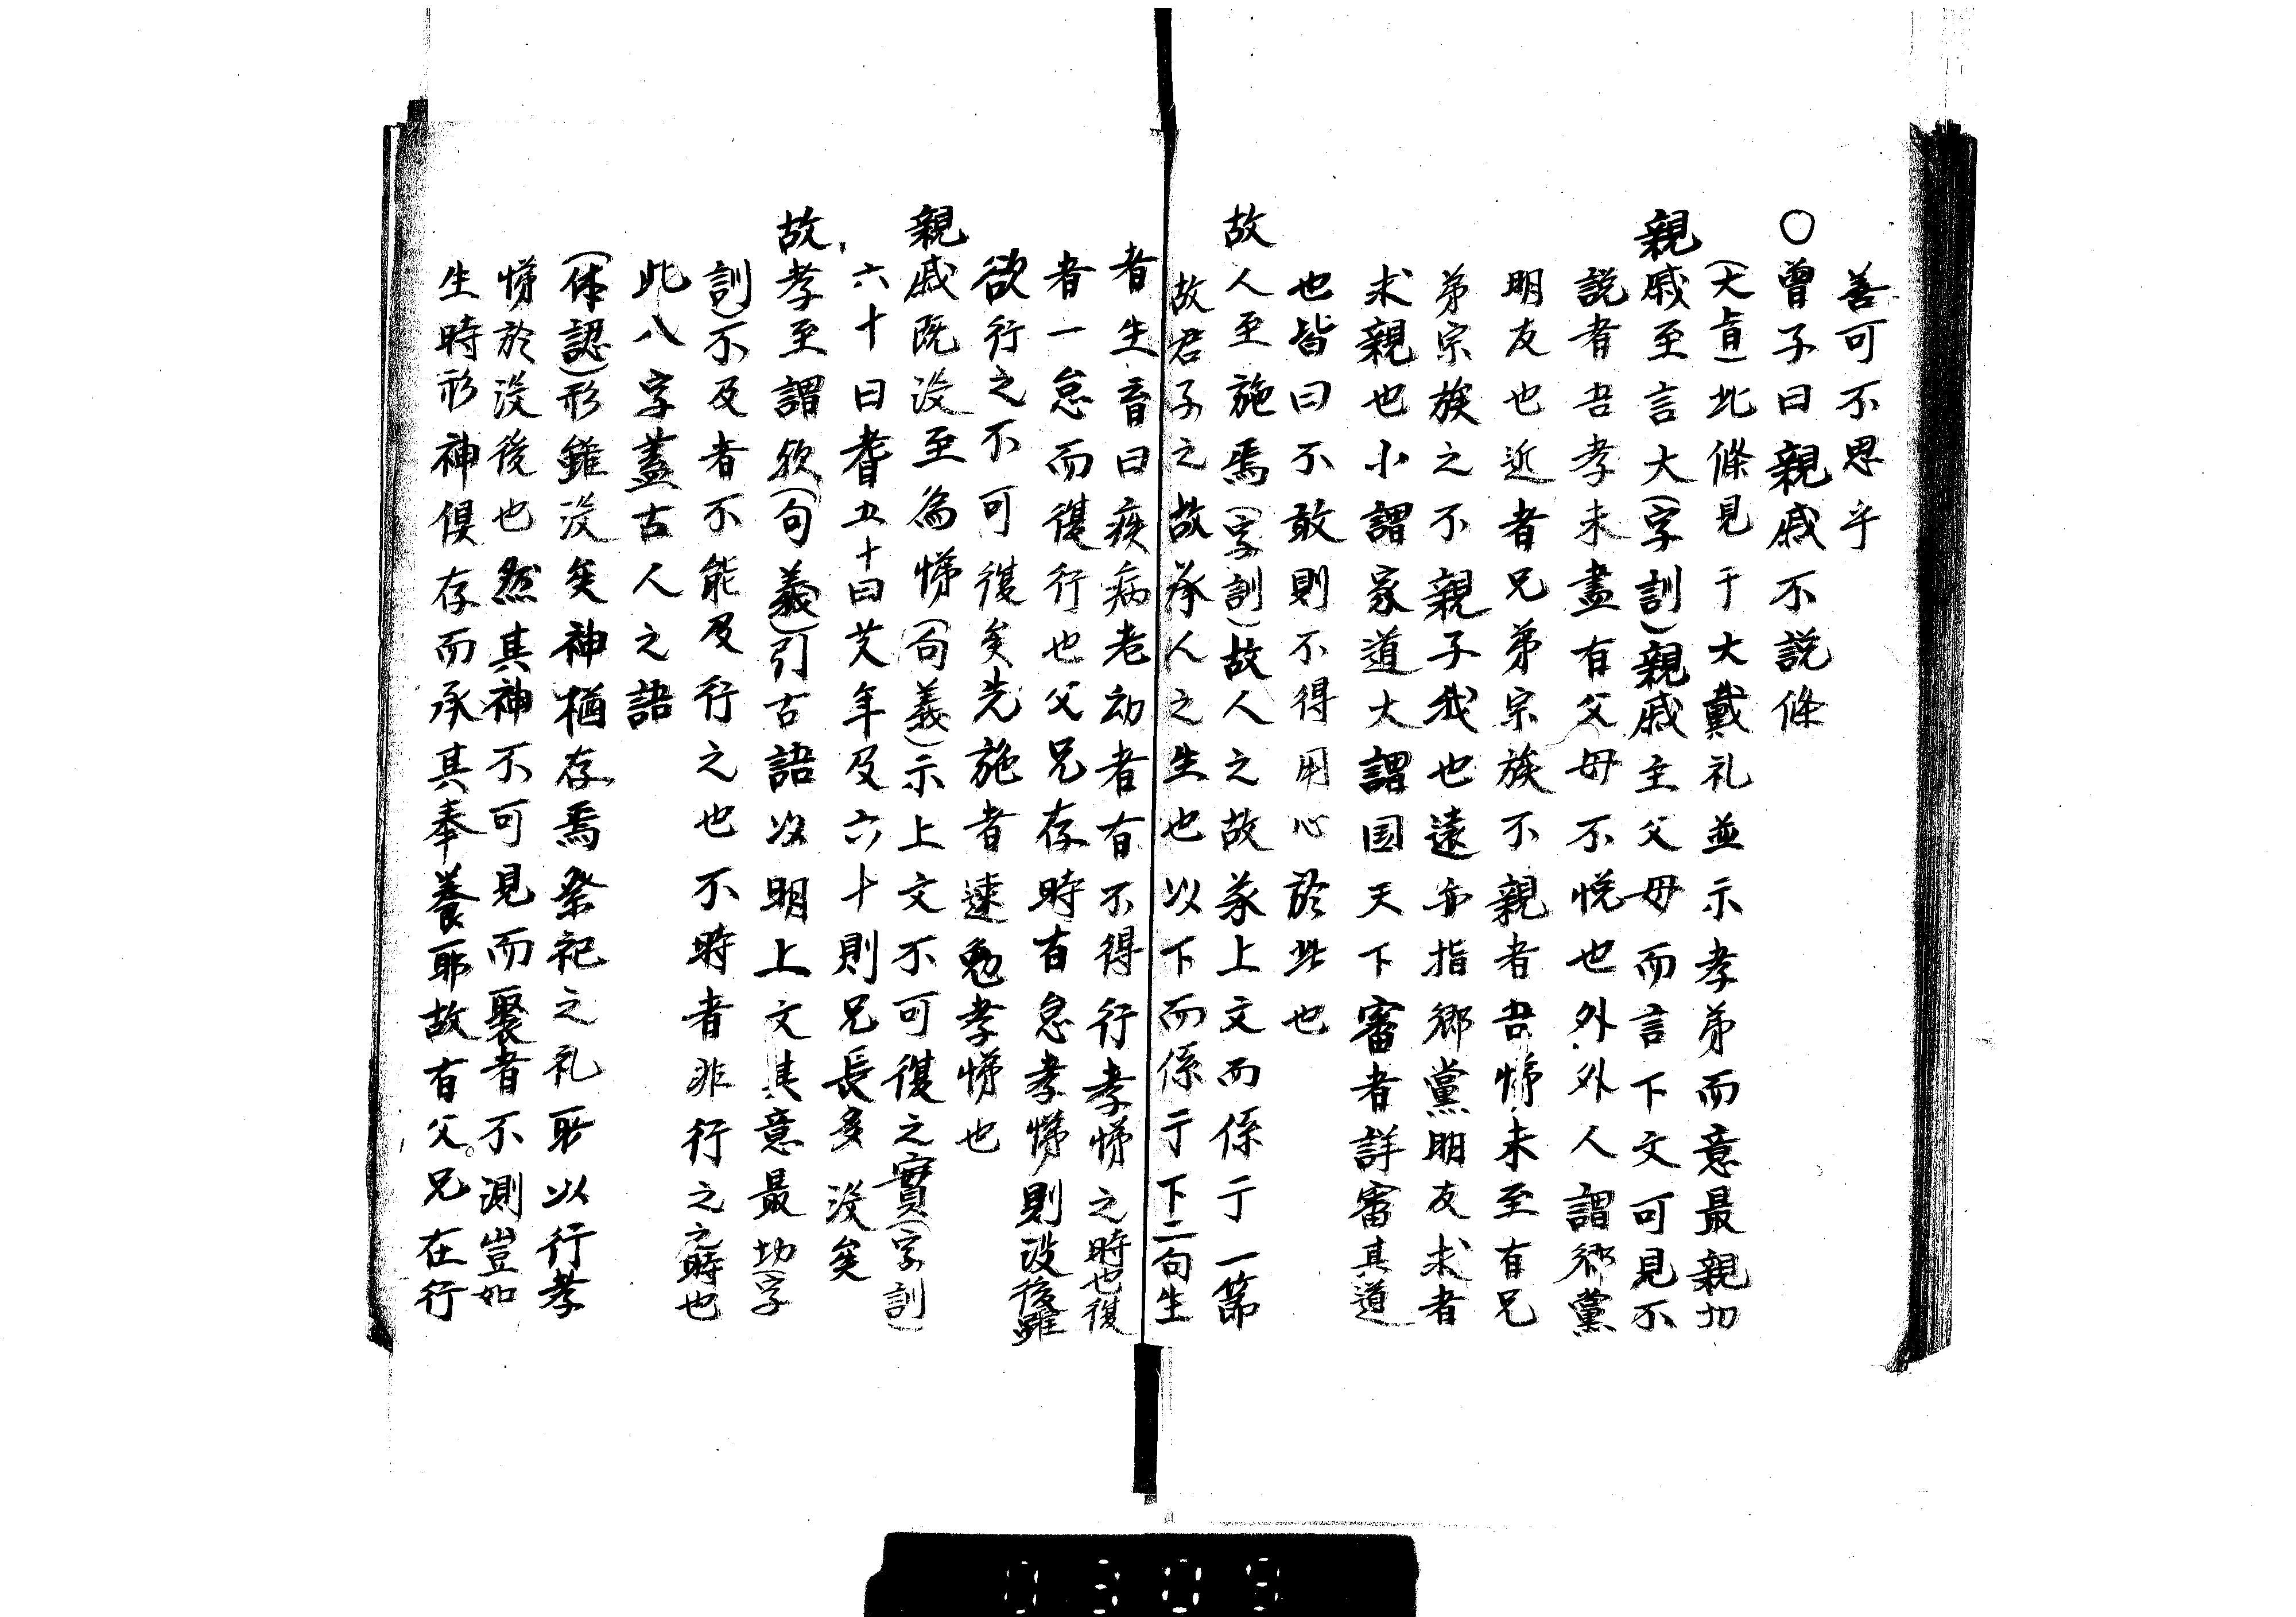 善可不思乎
○曾子曰親戚不説條
(大旨)此條見于大戴礼並示孝弟而意最親切
親戚至言大(字訓)親戚主父母而言下文可見不
説者吾孝未盡有父母不悦也外外人謂郷黨
朋友也近者兄弟宗族不親者吾悌未至有兄
弟宗族之不親子我也遠亦指郷黨朋友求者
求親也小謂家道大謂国天下審者詳審其道
也皆曰不敢則不得用心於此也
故人至施焉(字訓)故人之故承上文而係于一節
故君子之故承人之生也以下而係于下二句生
者生育曰疾病老幼者有不得行孝悌之時也復
者一怠而復行也父兄存時有怠孝悌則没後雖
欲行之不可復矣先施者速勉孝悌也
親戚既没至為悌(句義)示上文不可復之實(字訓)
六十曰耆五十曰艾年及六十則兄長多没矣
故孝至謂欤(句義)引古語以明上文其意最切(字
訓)不及者不能及行之也不時者非行之之時也
此八字蓋古人之語
(体認)形雖没矣神猶存焉祭祀之礼所以行孝
悌於没後也然其神不可見而褻者不測豈如
生時形神倶存而承其奉養耶故有父兄在行
0309